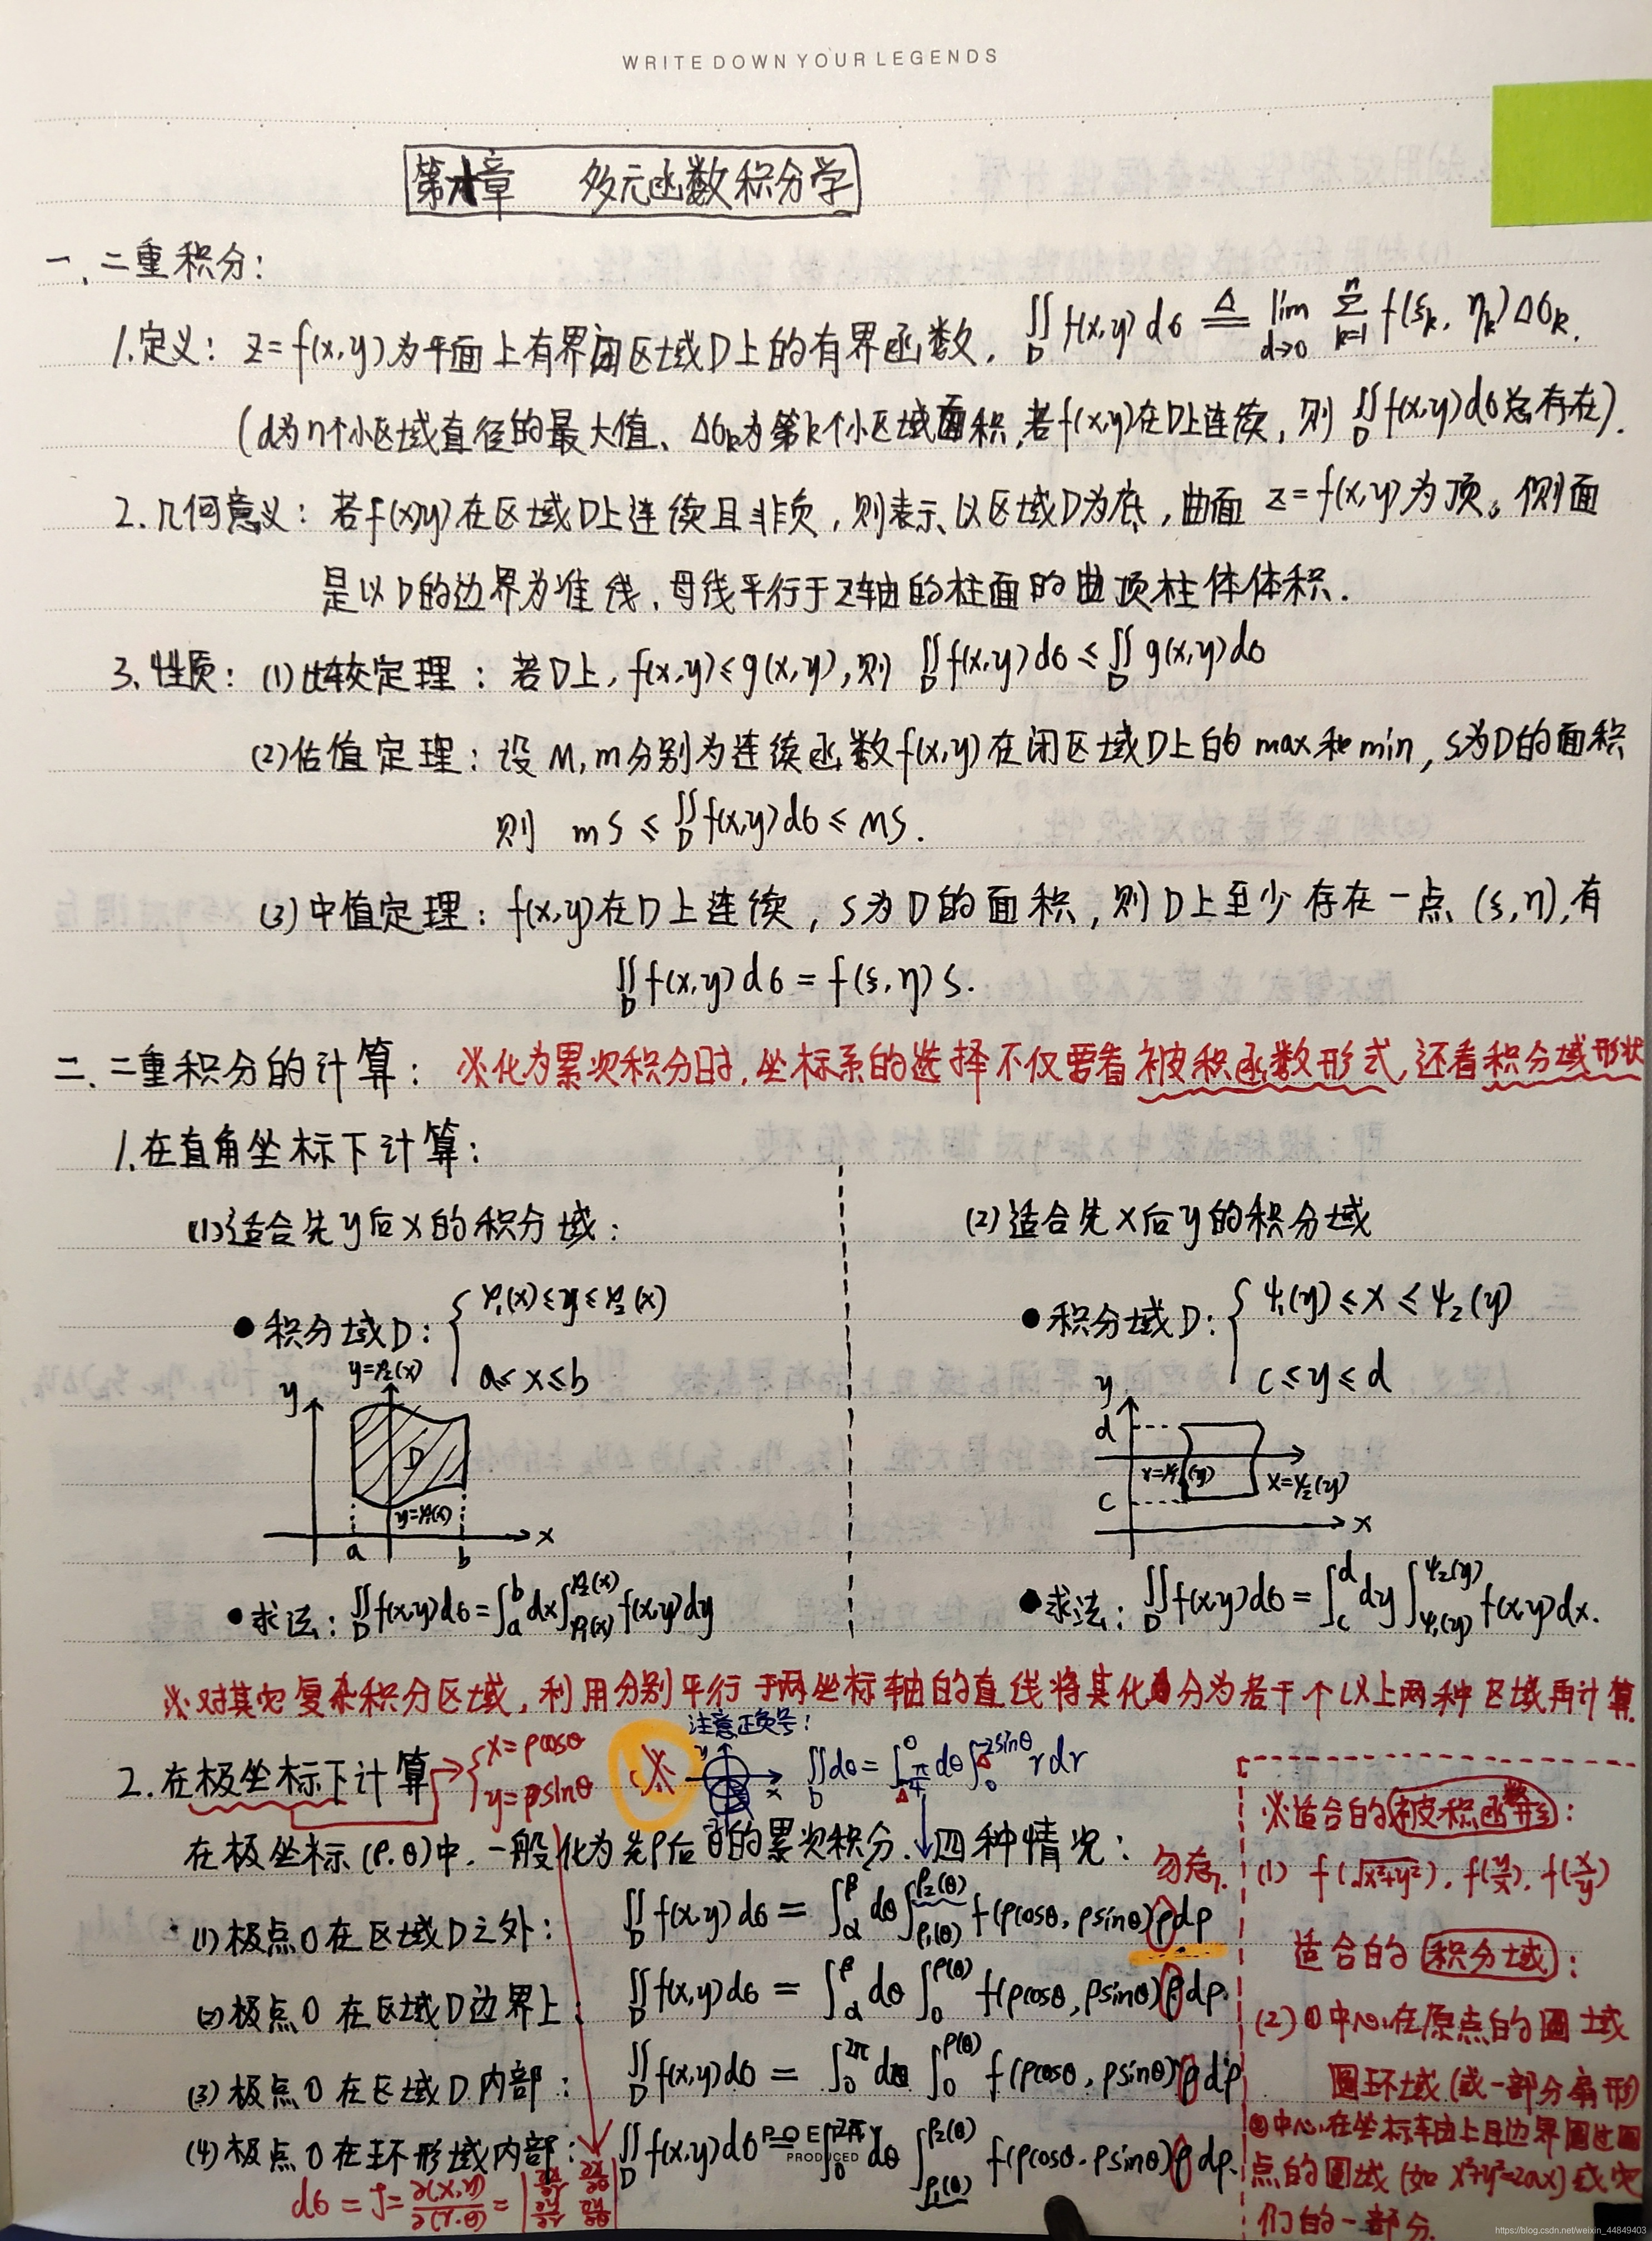 WRITE DOWN YOUR LEGENDS
第十章 多元函数积分学
一、二重积分:
1.定义: z=f(x,y)为平面上有界闭区域D上的有界函数, ∬_D f(x,y)dσ ≜ lim_{d→0} Σ_{k=1}^{n} f(ξ_k, η_k)Δσ_k.
(d为n个小区域直径的最大值、Δσ_k为第k个小区域面积,若f(x,y)在D上连续, 则 ∬_D f(x,y)dσ总存在).
2.几何意义: 若f(x,y)在区域D上连续且非负, 则表示以区域D为底, 曲面 z=f(x,y)为顶。侧面
是以D的边界为准线、母线平行于z轴的柱面的曲顶柱体体积.
3.性质: (1)比较定理: 若D上, f(x,y)≤g(x,y), 则 ∬_D f(x,y)dσ ≤ ∬_D g(x,y)dσ
(2)估值定理: 设M,m分别为连续函数f(x,y)在闭区域D上的max和min, S为D的面积
则 mS ≤ ∬_D f(x,y)dσ ≤ MS.
(3)中值定理: f(x,y)在D上连续, S为D的面积, 则D上至少存在一点(ξ,η),有
∬_D f(x,y)dσ = f(ξ,η)S.
二、二重积分的计算: ※化为累次积分时,坐标系的选择不仅要看被积函数形式,还看积分域形状
1.在直角坐标下计算:
(1)适合先y后x的积分域:
(2)适合先x后y的积分域
●积分域D: { φ₁(x)≤y≤φ₂(x)
a≤x≤b
●积分域D: { ψ₁(y)≤x≤ψ₂(y)
c≤y≤d
y=φ₂(x)
y
D
y=φ₁(x)
a b x
y
d
x=ψ₁(y) x=ψ₂(y)
c
x
●求法: ∬_D f(x,y)dσ=∫_a^b dx∫_{φ₁(x)}^{φ₂(x)} f(x,y)dy
●求法: ∬_D f(x,y)dσ=∫_c^d dy∫_{ψ₁(y)}^{ψ₂(y)} f(x,y)dx.
※对其它复杂积分区域, 利用分别平行于两坐标轴的直线将其化分为若干个以上两种区域再计算.
注意正负号!
2.在极坐标下计算 → { x=ρcosθ
y=ρsinθ
※ y x ∬_D dσ = ∫_{-π/4}^0 dθ∫_0^{-2sinθ} r dr
在极坐标(ρ,θ)中, 一般化为先ρ后θ的累次积分. 四种情况:
勿忘.
(1)极点O在区域D之外: ∬_D f(x,y)dσ = ∫_α^β dθ∫_{ρ₁(θ)}^{ρ₂(θ)} f(ρcosθ, ρsinθ)ρdρ
(2)极点O在区域D边界上: ∬_D f(x,y)dσ = ∫_α^β dθ∫_0^{ρ(θ)} f(ρcosθ, ρsinθ)ρdρ.
(3)极点O在区域D内部: ∬_D f(x,y)dσ = ∫_0^{2π} dθ∫_0^{ρ(θ)} f(ρcosθ, ρsinθ)ρdρ
(4)极点O在环形域内部: ∬_D f(x,y)dσ = ∫_0^{2π} dθ∫_{ρ₁(θ)}^{ρ₂(θ)} f(ρcosθ, ρsinθ)ρdρ.
PRODUCED
dσ = J = ∂(x,y)/∂(r,θ) = | ∂x/∂r ∂x/∂θ
∂y/∂r ∂y/∂θ |
※适合的被积函数形:
(1) f(√(x²+y²)), f(y/x), f(x/y)
适合的积分域:
(2)①中心在原点的圆域
圆环域(或一部分扇形)
②中心在坐标轴上且边界圆过圆
点的圆域(如x²+y²=2ax)或它
们的一部分.
https://blog.csdn.net/weixin_44849403